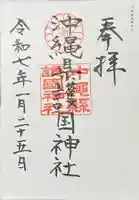 奉拝
沖縄県護国神社
令和七年一月二十五日